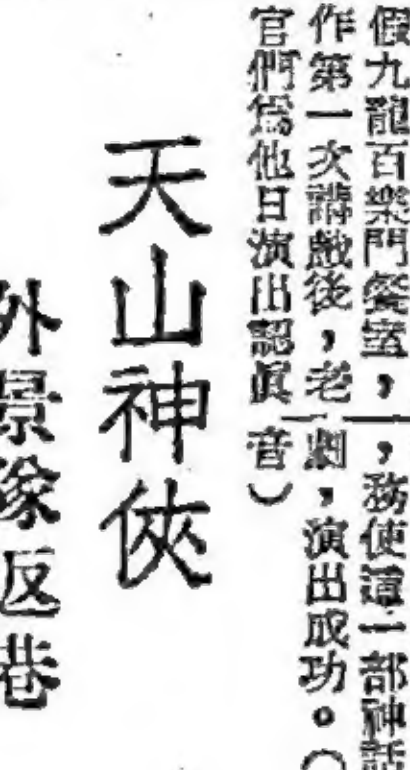 假九龍百樂門餐室,
作第一次講戲後,老
官們爲他日演出認眞
,務使這一部神話
劇,演出成功。(
音)
天山神俠
外景隊返港